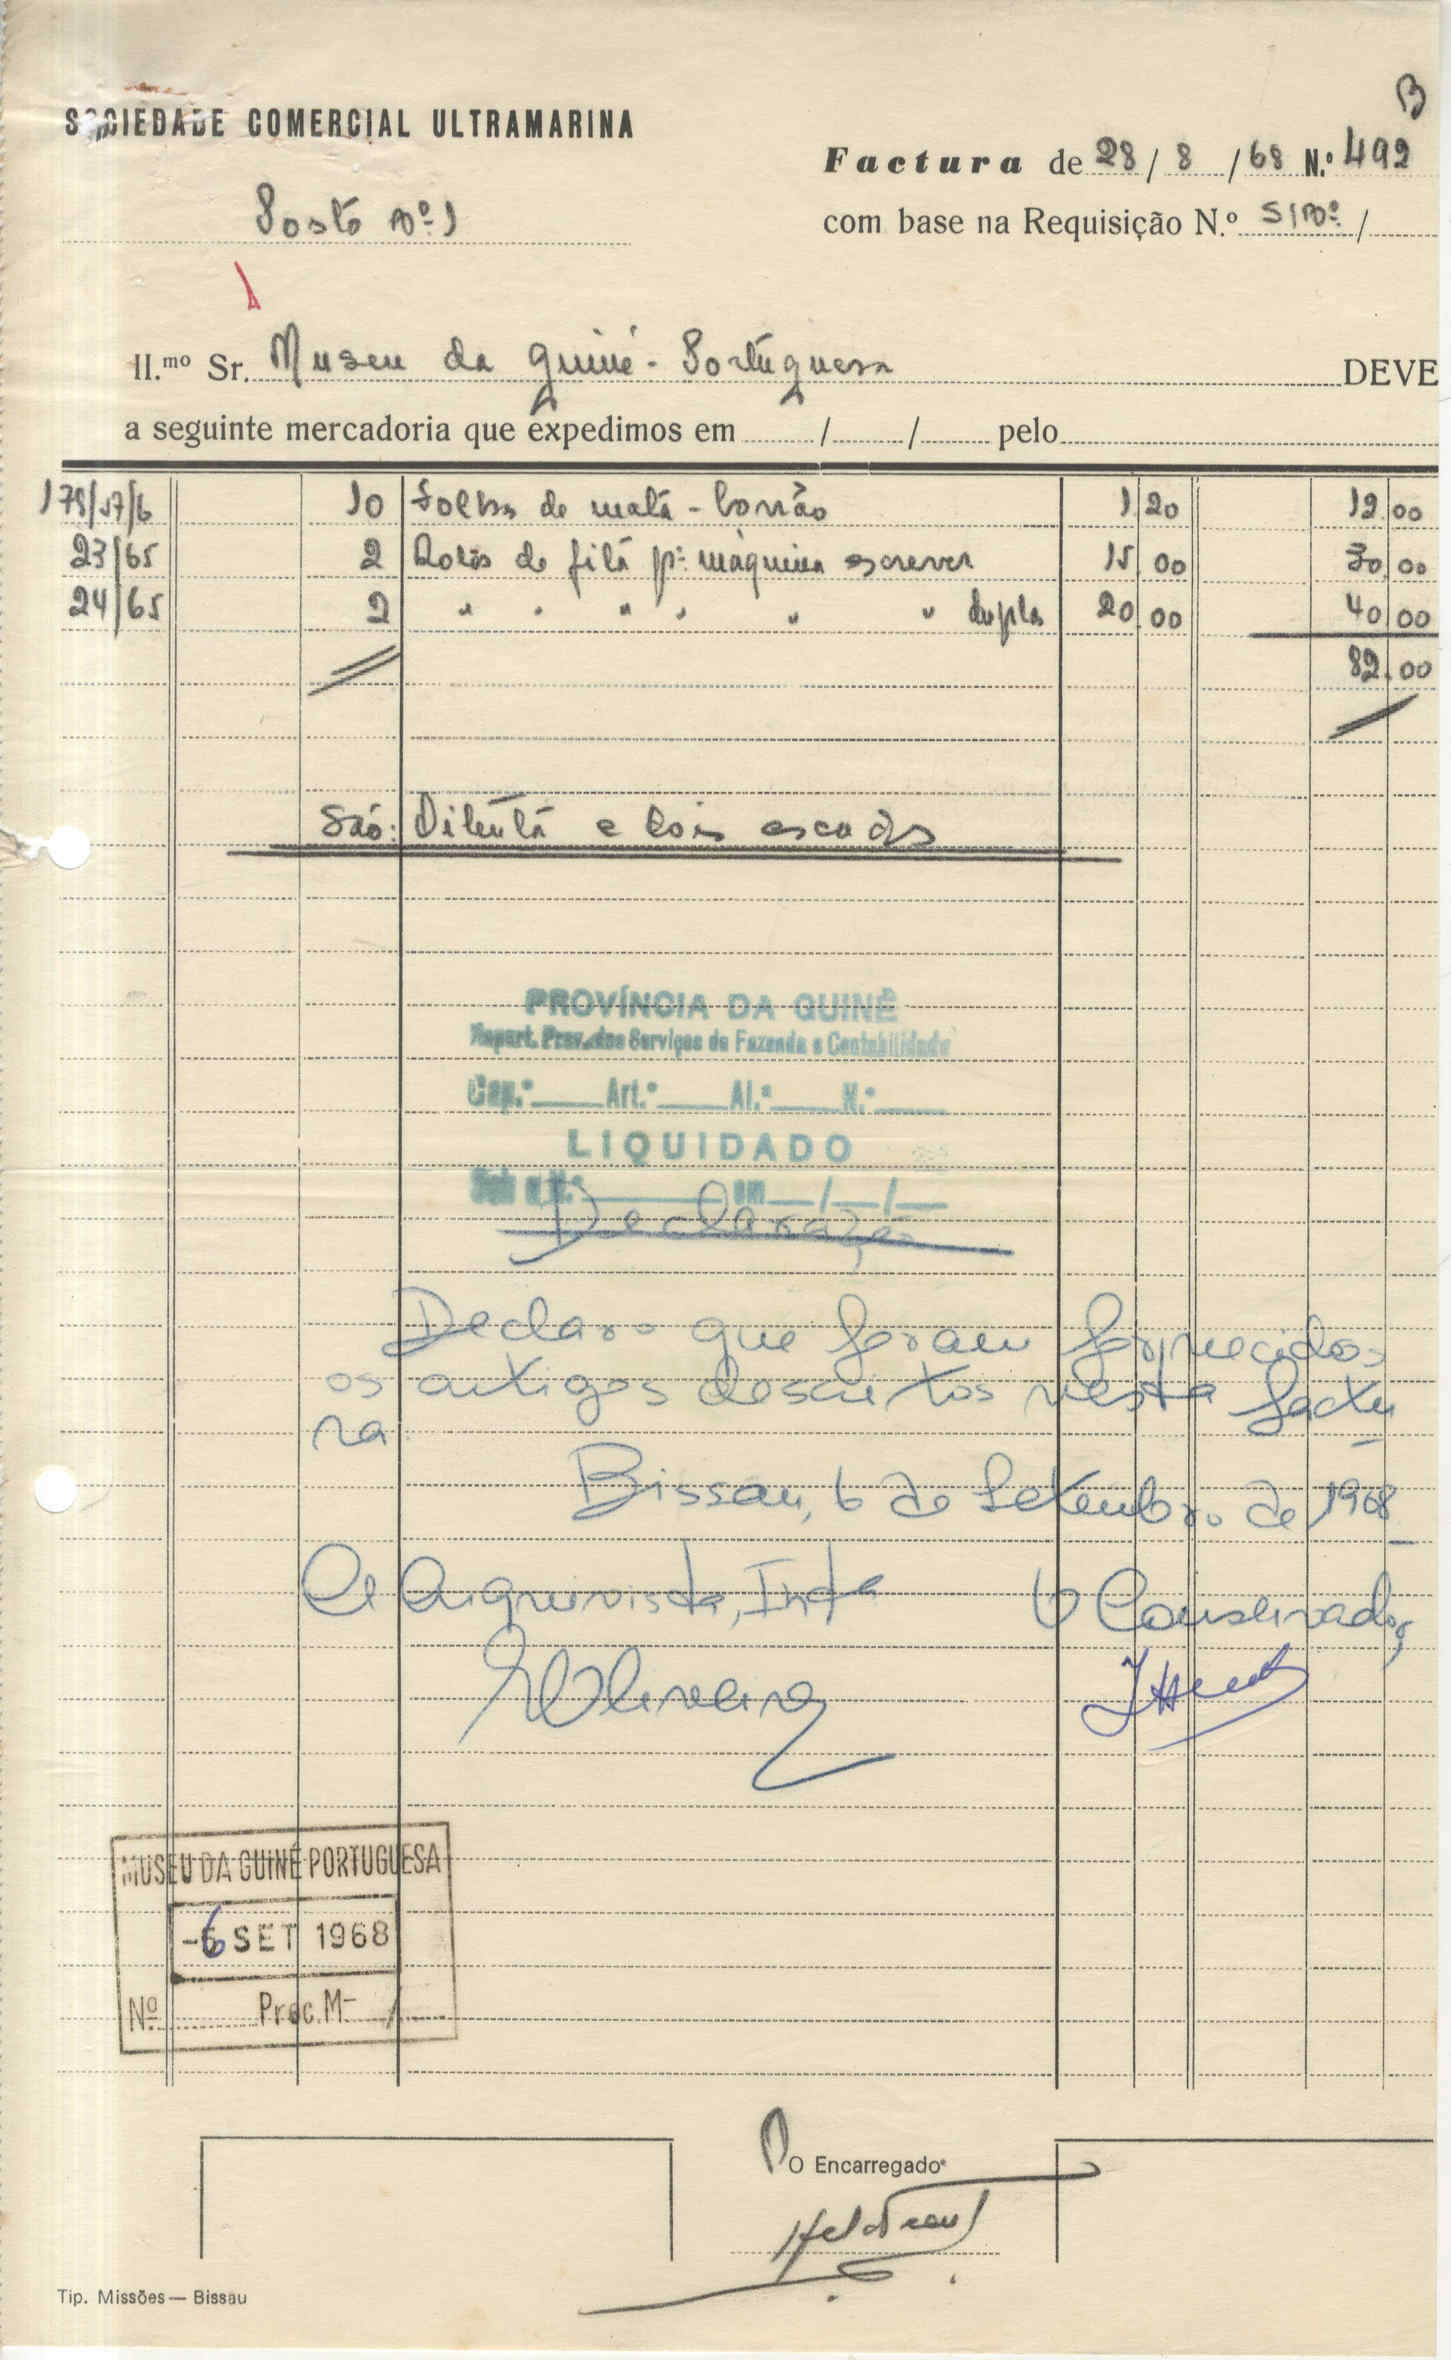 B
SOCIEDADE COMERCIAL ULTRAMARINA
Factura de 28/8/68 N.º 492
Posto nº 1
com base na Requisição N.º S/nº /
Il.mo Sr. Museu da Guiné-Portuguesa DEVE
a seguinte mercadoria que expedimos em / / pelo
179/57/6 10 Folhas de mata-borrão 1.20 12.00
23/65 2 Rolos de fita pª maquina escrever 15.00 30.00
24/65 2 " " " " " " dupla 20.00 40.00
82.00
São: Oitenta e dois escudos
PROVÍNCIA DA GUINÉ
Repart. Prov. dos Serviços de Fazenda e Contabilidade
Cap.º Art.º Al.ª N.º
LIQUIDADO
em / /
Declaração
Declaro que foram fornecidos
os artigos descritos nesta factu
ra.
Bissau, 6 de Setembro de 1968
Arquivista, Intª O Conservador,
Oliveira
MUSEU DA GUINÉ PORTUGUESA
-6 SET 1968
Nº Proc. M- /
O Encarregado
Tip. Missões — Bissau